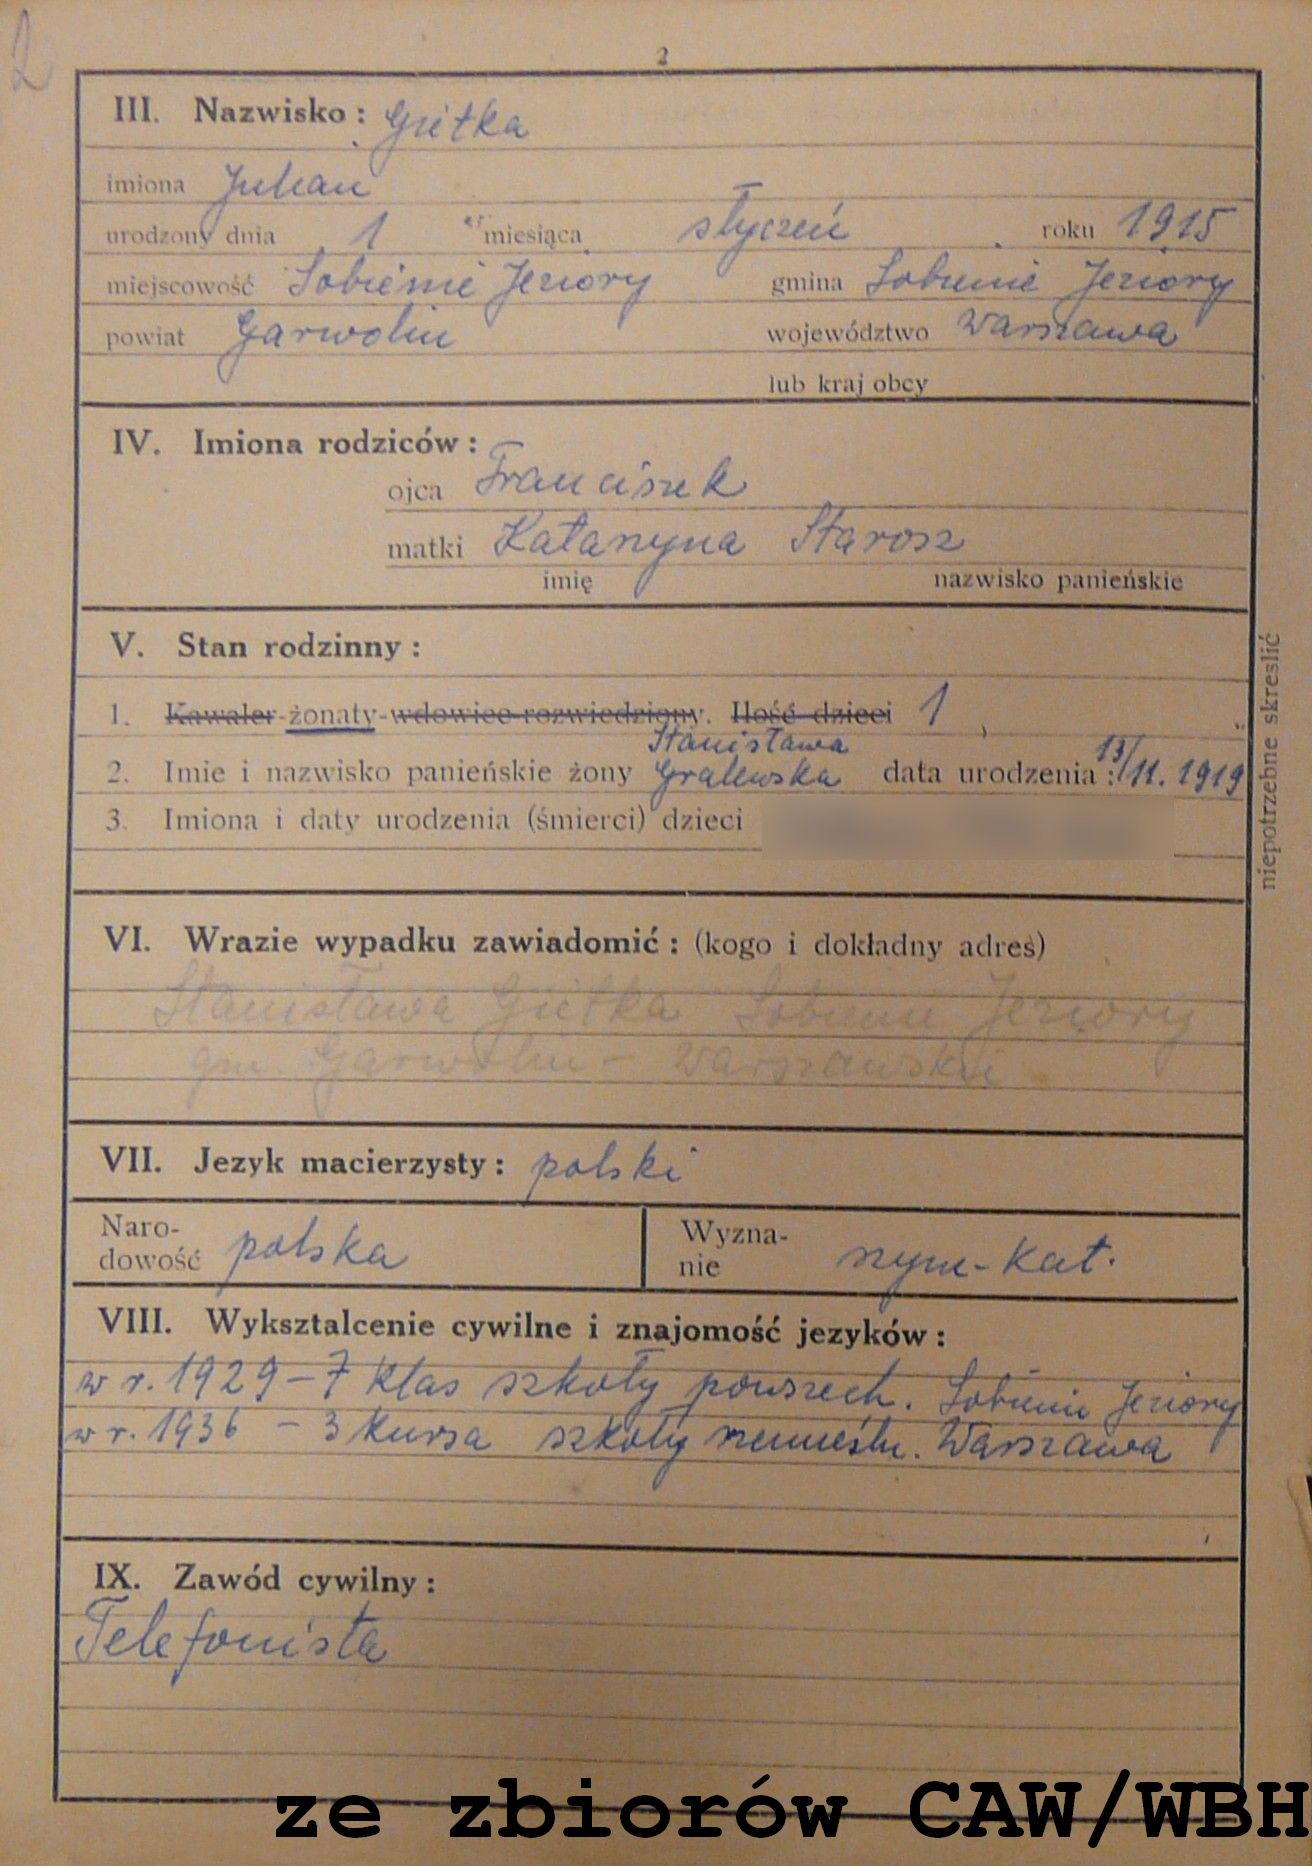 2
2
III. Nazwisko: Gietka
imiona Julian
urodzony dnia 1 miesiąca styczeń roku 1915
miejscowość Sobienie Jeziory gmina Sobienie Jeziory
powiat Garwolin województwo Warszawa
lub kraj obcy
IV. Imiona rodziców:
ojca Franciszek
matki Katarzyna Starosz
imię nazwisko panieńskie
V. Stan rodzinny:
1. Kawaler-żonaty-wdowiec-rozwiedziony. Ilość dzieci 1
Stanisława
2. Imie i nazwisko panieńskie żony Gralewska data urodzenia: 13/11. 1919
3. Imiona i daty urodzenia (śmierci) dzieci
niepotrzebne skreslić
VI. Wrazie wypadku zawiadomić: (kogo i dokładny adres)
Stanisława Gietka Sobienie Jeziory
gm. Garwolin - Warszawskie
VII. Jezyk macierzysty: polski
Naro-
dowość polska
Wyzna-
nie rzym-kat.
VIII. Wyksztalcenie cywilne i znajomość jezyków:
w r. 1929 - 7 klas szkoły powszech. Sobienie Jeziory
w r. 1936 - 3 kursa szkoły rzemieśln. Warszawa
IX. Zawód cywilny:
Telefonista
ze zbiorów CAW/WBH